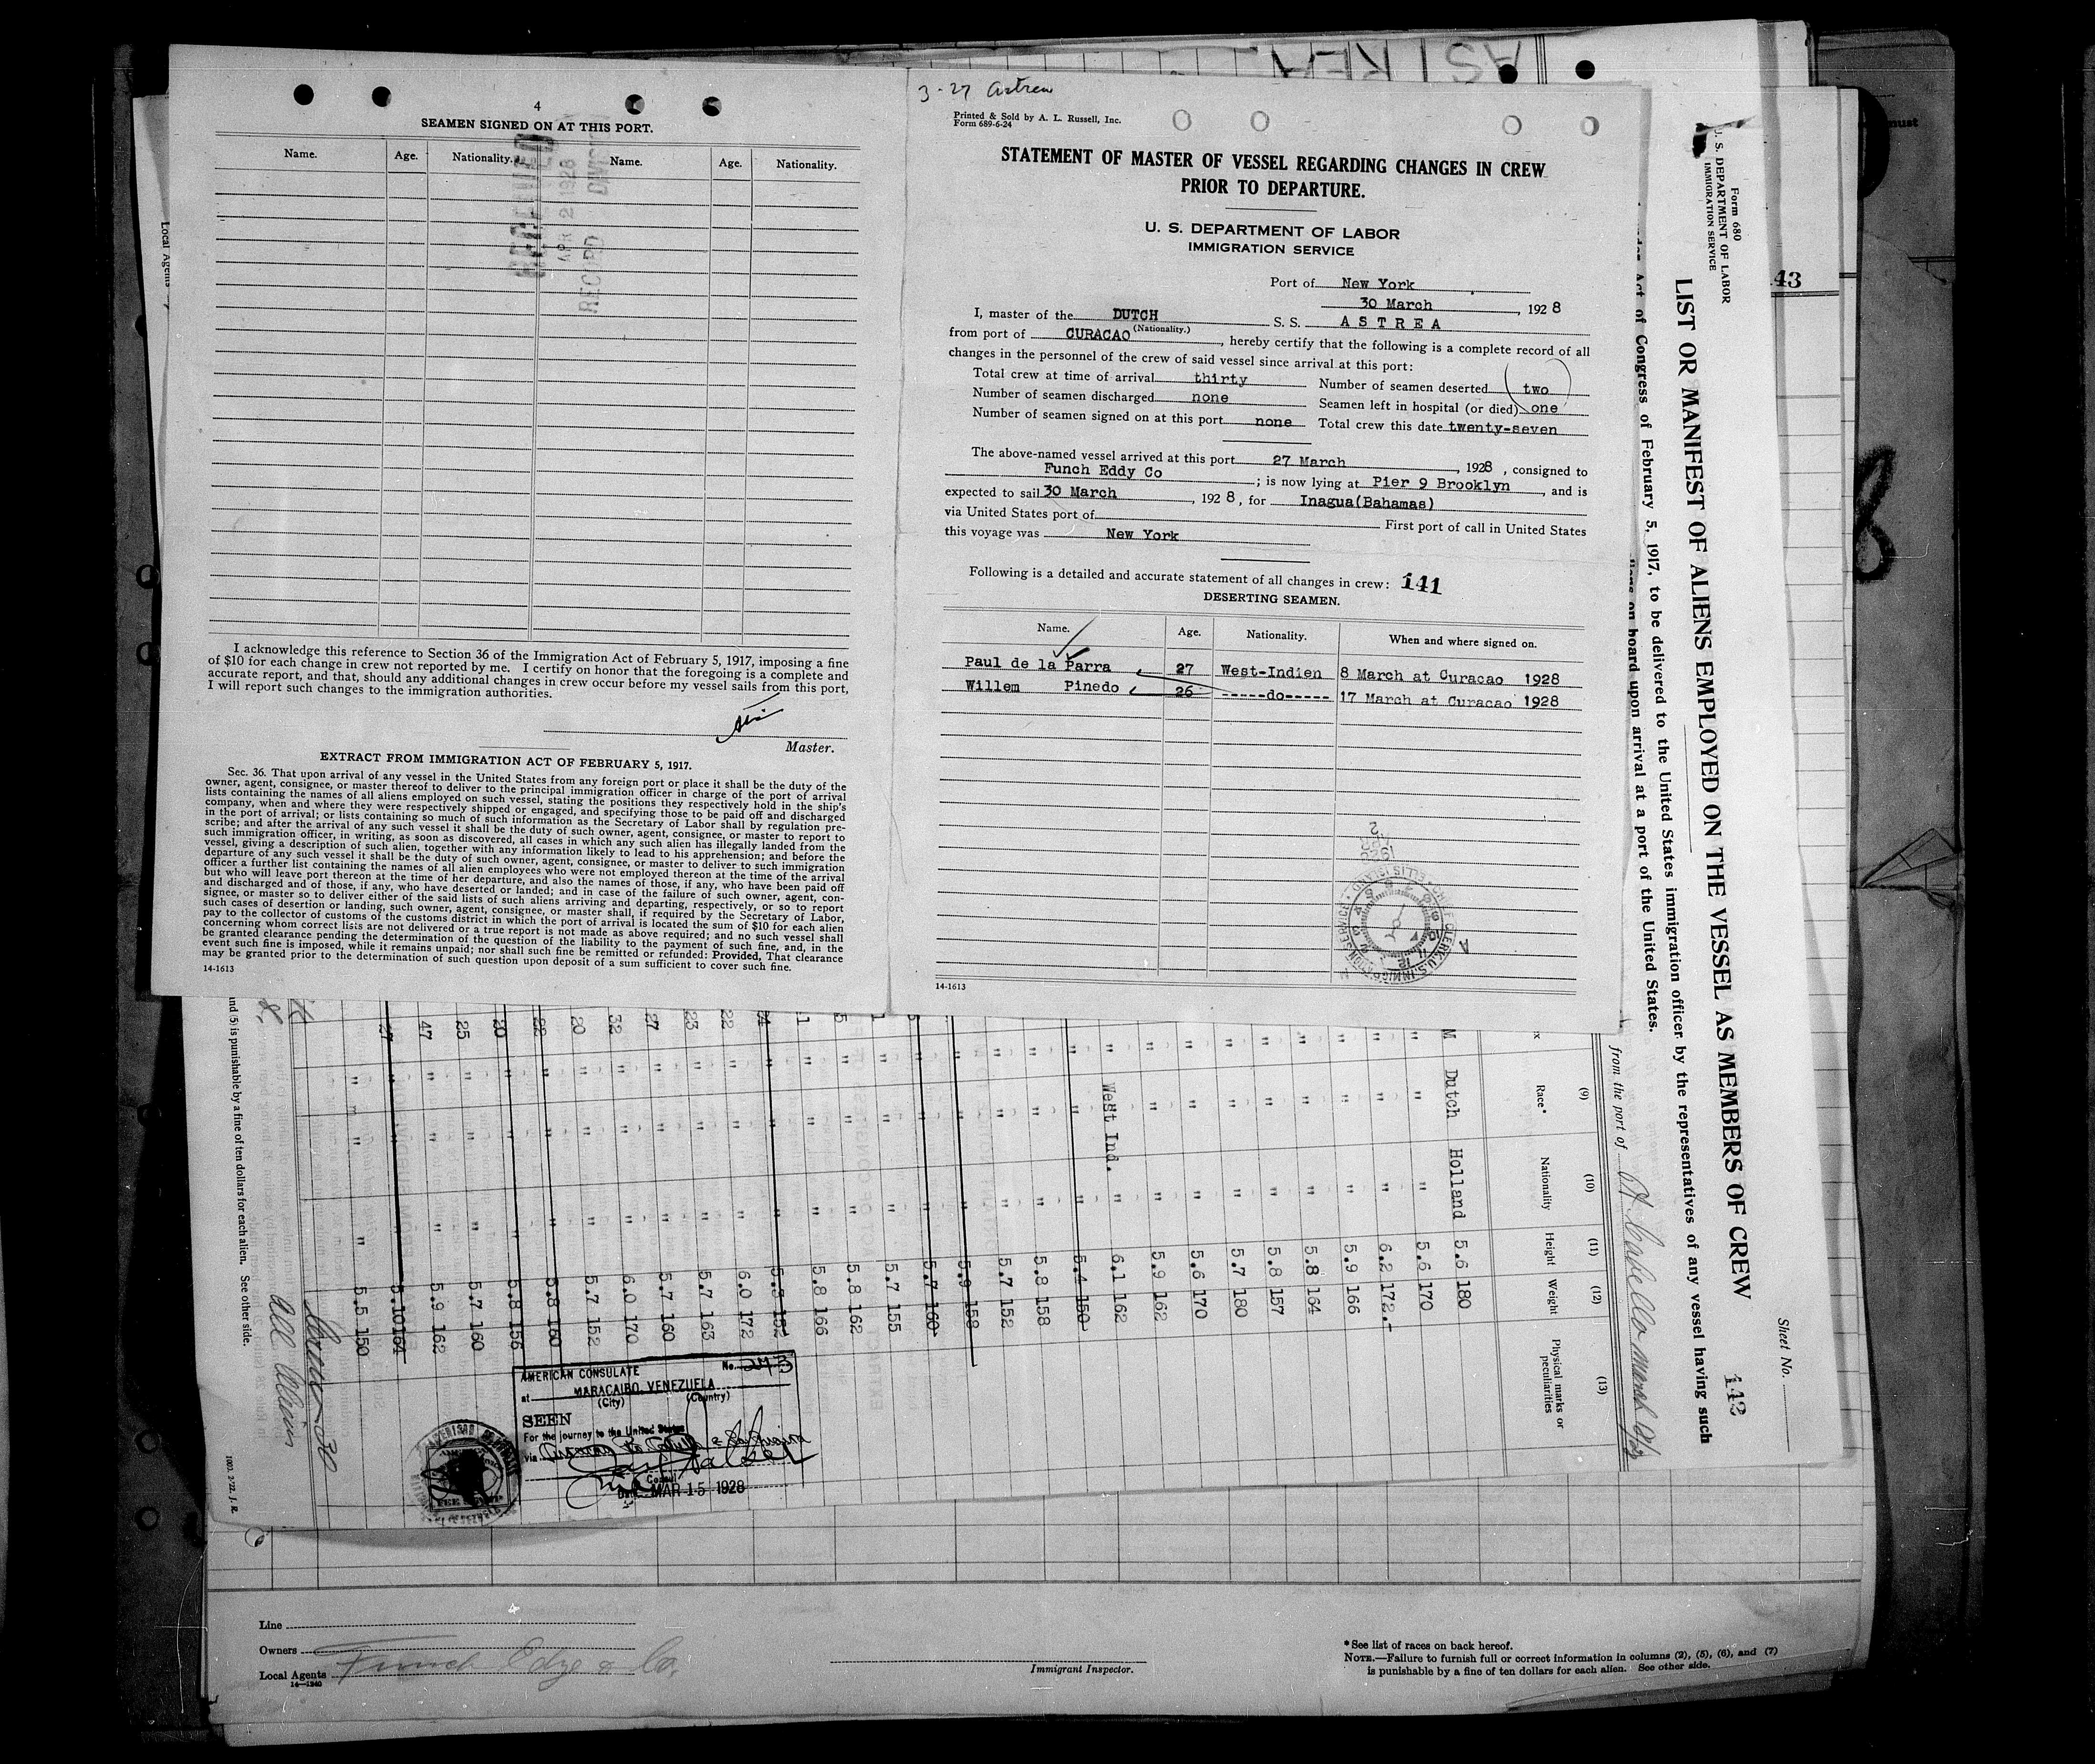 4
SEAMEN SIGNED ON AT THIS PORT.
Name. Age. Nationality. Name. Age. Nationality.
APR 2 1928
REC'D DIV
I acknowledge this reference to Section 36 of the Immigration Act of February 5, 1917, imposing a fine
of $10 for each change in crew not reported by me. I certify on honor that the foregoing is a complete and
accurate report, and that, should any additional changes in crew occur before my vessel sails from this port,
I will report such changes to the immigration authorities.
Master.
EXTRACT FROM IMMIGRATION ACT OF FEBRUARY 5, 1917.
Sec. 36. That upon arrival of any vessel in the United States from any foreign port or place it shall be the duty of the
owner, agent, consignee, or master thereof to deliver to the principal immigration officer in charge of the port of arrival
lists containing the names of all aliens employed on such vessel, stating the positions they respectively hold in the ship's
company, when and where they were respectively shipped or engaged, and specifying those to be paid off and discharged
in the port of arrival; or lists containing so much of such information as the Secretary of Labor shall by regulation pre-
scribe; and after the arrival of any such vessel it shall be the duty of such owner, agent, consignee, or master to report to
such immigration officer, in writing, as soon as discovered, all cases in which any such alien has illegally landed from the
vessel, giving a description of such alien, together with any information likely to lead to his apprehension; and before the
departure of any such vessel it shall be the duty of such owner, agent, consignee, or master to deliver to such immigration
officer a further list containing the names of all alien employees who were not employed thereon at the time of the arrival
but who will leave port thereon at the time of her departure, and also the names of those, if any, who have been paid off
and discharged and of those, if any, who have deserted or landed; and in case of the failure of such owner, agent, con-
signee, or master so to deliver either of the said lists of such aliens arriving and departing, respectively, or so to report
such cases of desertion or landing, such owner, agent, consignee, or master shall, if required by the Secretary of Labor,
pay to the collector of customs of the customs district in which the port of arrival is located the sum of $10 for each alien
concerning whom correct lists are not delivered or a true report is not made as above required; and no such vessel shall
be granted clearance pending the determination of the question of the liability to the payment of such fine, and, in the
event such fine is imposed, while it remains unpaid; nor shall such fine be remitted or refunded: Provided, That clearance
may be granted prior to the determination of such question upon deposit of a sum sufficient to cover such fine.
14-1613
3-27 Astrea
Printed & Sold by A. L. Russell, Inc.
Form 689-6-24
STATEMENT OF MASTER OF VESSEL REGARDING CHANGES IN CREW
PRIOR TO DEPARTURE.
U. S. DEPARTMENT OF LABOR
IMMIGRATION SERVICE
Port of New York
30 March, 1928
I, master of the DUTCH S. S. ASTREA
(Nationality.)
from port of CURACAO, hereby certify that the following is a complete record of all
changes in the personnel of the crew of said vessel since arrival at this port:
Total crew at time of arrival thirty Number of seamen deserted two
Number of seamen discharged none Seamen left in hospital (or died) one
Number of seamen signed on at this port none Total crew this date twenty-seven
The above-named vessel arrived at this port 27 March, 1928, consigned to
Funch Eddy Co; is now lying at Pier 9 Brooklyn, and is
expected to sail 30 March, 1928, for Inagua(Bahamas)
via United States port of First port of call in United States
this voyage was New York
Following is a detailed and accurate statement of all changes in crew: 141
DESERTING SEAMEN.
Name. Age. Nationality. When and where signed on.
Paul de la Parra 27 West-Indien 8 March at Curacao 1928
Willem Pinedo 26 -----do----- 17 March at Curacao 1928
14-1613
ASTREA
43
Form 680
U. S. DEPARTMENT OF LABOR
IMMIGRATION SERVICE
Sheet No.
LIST OR MANIFEST OF ALIENS EMPLOYED ON THE VESSEL AS MEMBERS OF CREW 142
Act of Congress of February 5, 1917, to be delivered to the United States immigration officer by the representatives of any vessel having such
on board upon arrival at a port of the United States.
from the port of Pt Cabello march
(9) (10) (11) (12) (13)
Race* Nationality Height Weight Physical marks or peculiarities
M Dutch Holland 5.6 180
" " " 5.6 170
" " " 6.2 172.-
" " " 5.9 166
" " " 5.8 164
" " " 5.8 157
" " " 5.7 180
" " " 5.6 170
" " " 5.9 162
" West Ind. " 6.1 162
" " " 5.4 150
" " " 5.8 158
" " " 5.7 152
" " " 5.9 158
" " " 5.7 160
" " " 5.7 155
" " " 5.8 162
" " " 5.8 166
24 " " " 5.3 152
22 " " " 6.0 172
23 " " " 5.7 163
27 " " " 5.7 160
32 " " " 6.0 170
20 " " " 5.7 152
22 " " " 5.8 160
20 " " " 5.8 156
25 " " " 5.7 160
47 " " " 5.9 162
27 " " " 5.10 164
" " " 5.5 150
Crew 30
All Aliens
and (5) is punishable by a fine of ten dollars for each alien. See other side.
Local Agents
AMERICAN CONSULATE No. 243
at MARACAIBO, VENEZUELA
(City) (Country)
SEEN
For the journey to the United States
via
Consul
Date MAR 15 1928
Line
Owners
Local Agents Funch Edye & Co.
14—1240
Immigrant Inspector.
*See list of races on back hereof.
NOTE.—Failure to furnish full or correct information in columns (2), (5), (6), and (7)
is punishable by a fine of ten dollars for each alien. See other side.